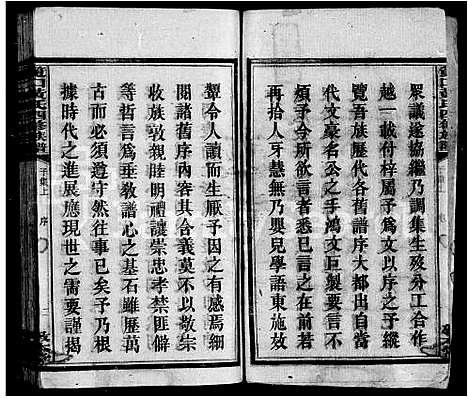 眾議遂協繼乃調集生歿分工合作
越一載付梓屬予為文以序之予縱
覽吾族歷代各舊譜序大都出自當
代文豪名公之手鴻文巨製要言不
煩予今所欲言者悉已言之在前若
再拾人牙慧無乃嬰兒學語東施效
顰令人讀而生厭予因之有感焉細
閱諸舊序內容其含義莫不以敬宗
收族敦親睦明禮讓崇忠孝禁匪僻
等哲言為垂教譜心之基石雖歷萬
古而必須遵守然往事已矣予乃根
據時代之進展應現世之需要謹揭
黃氏四修族譜
子集上
序
二